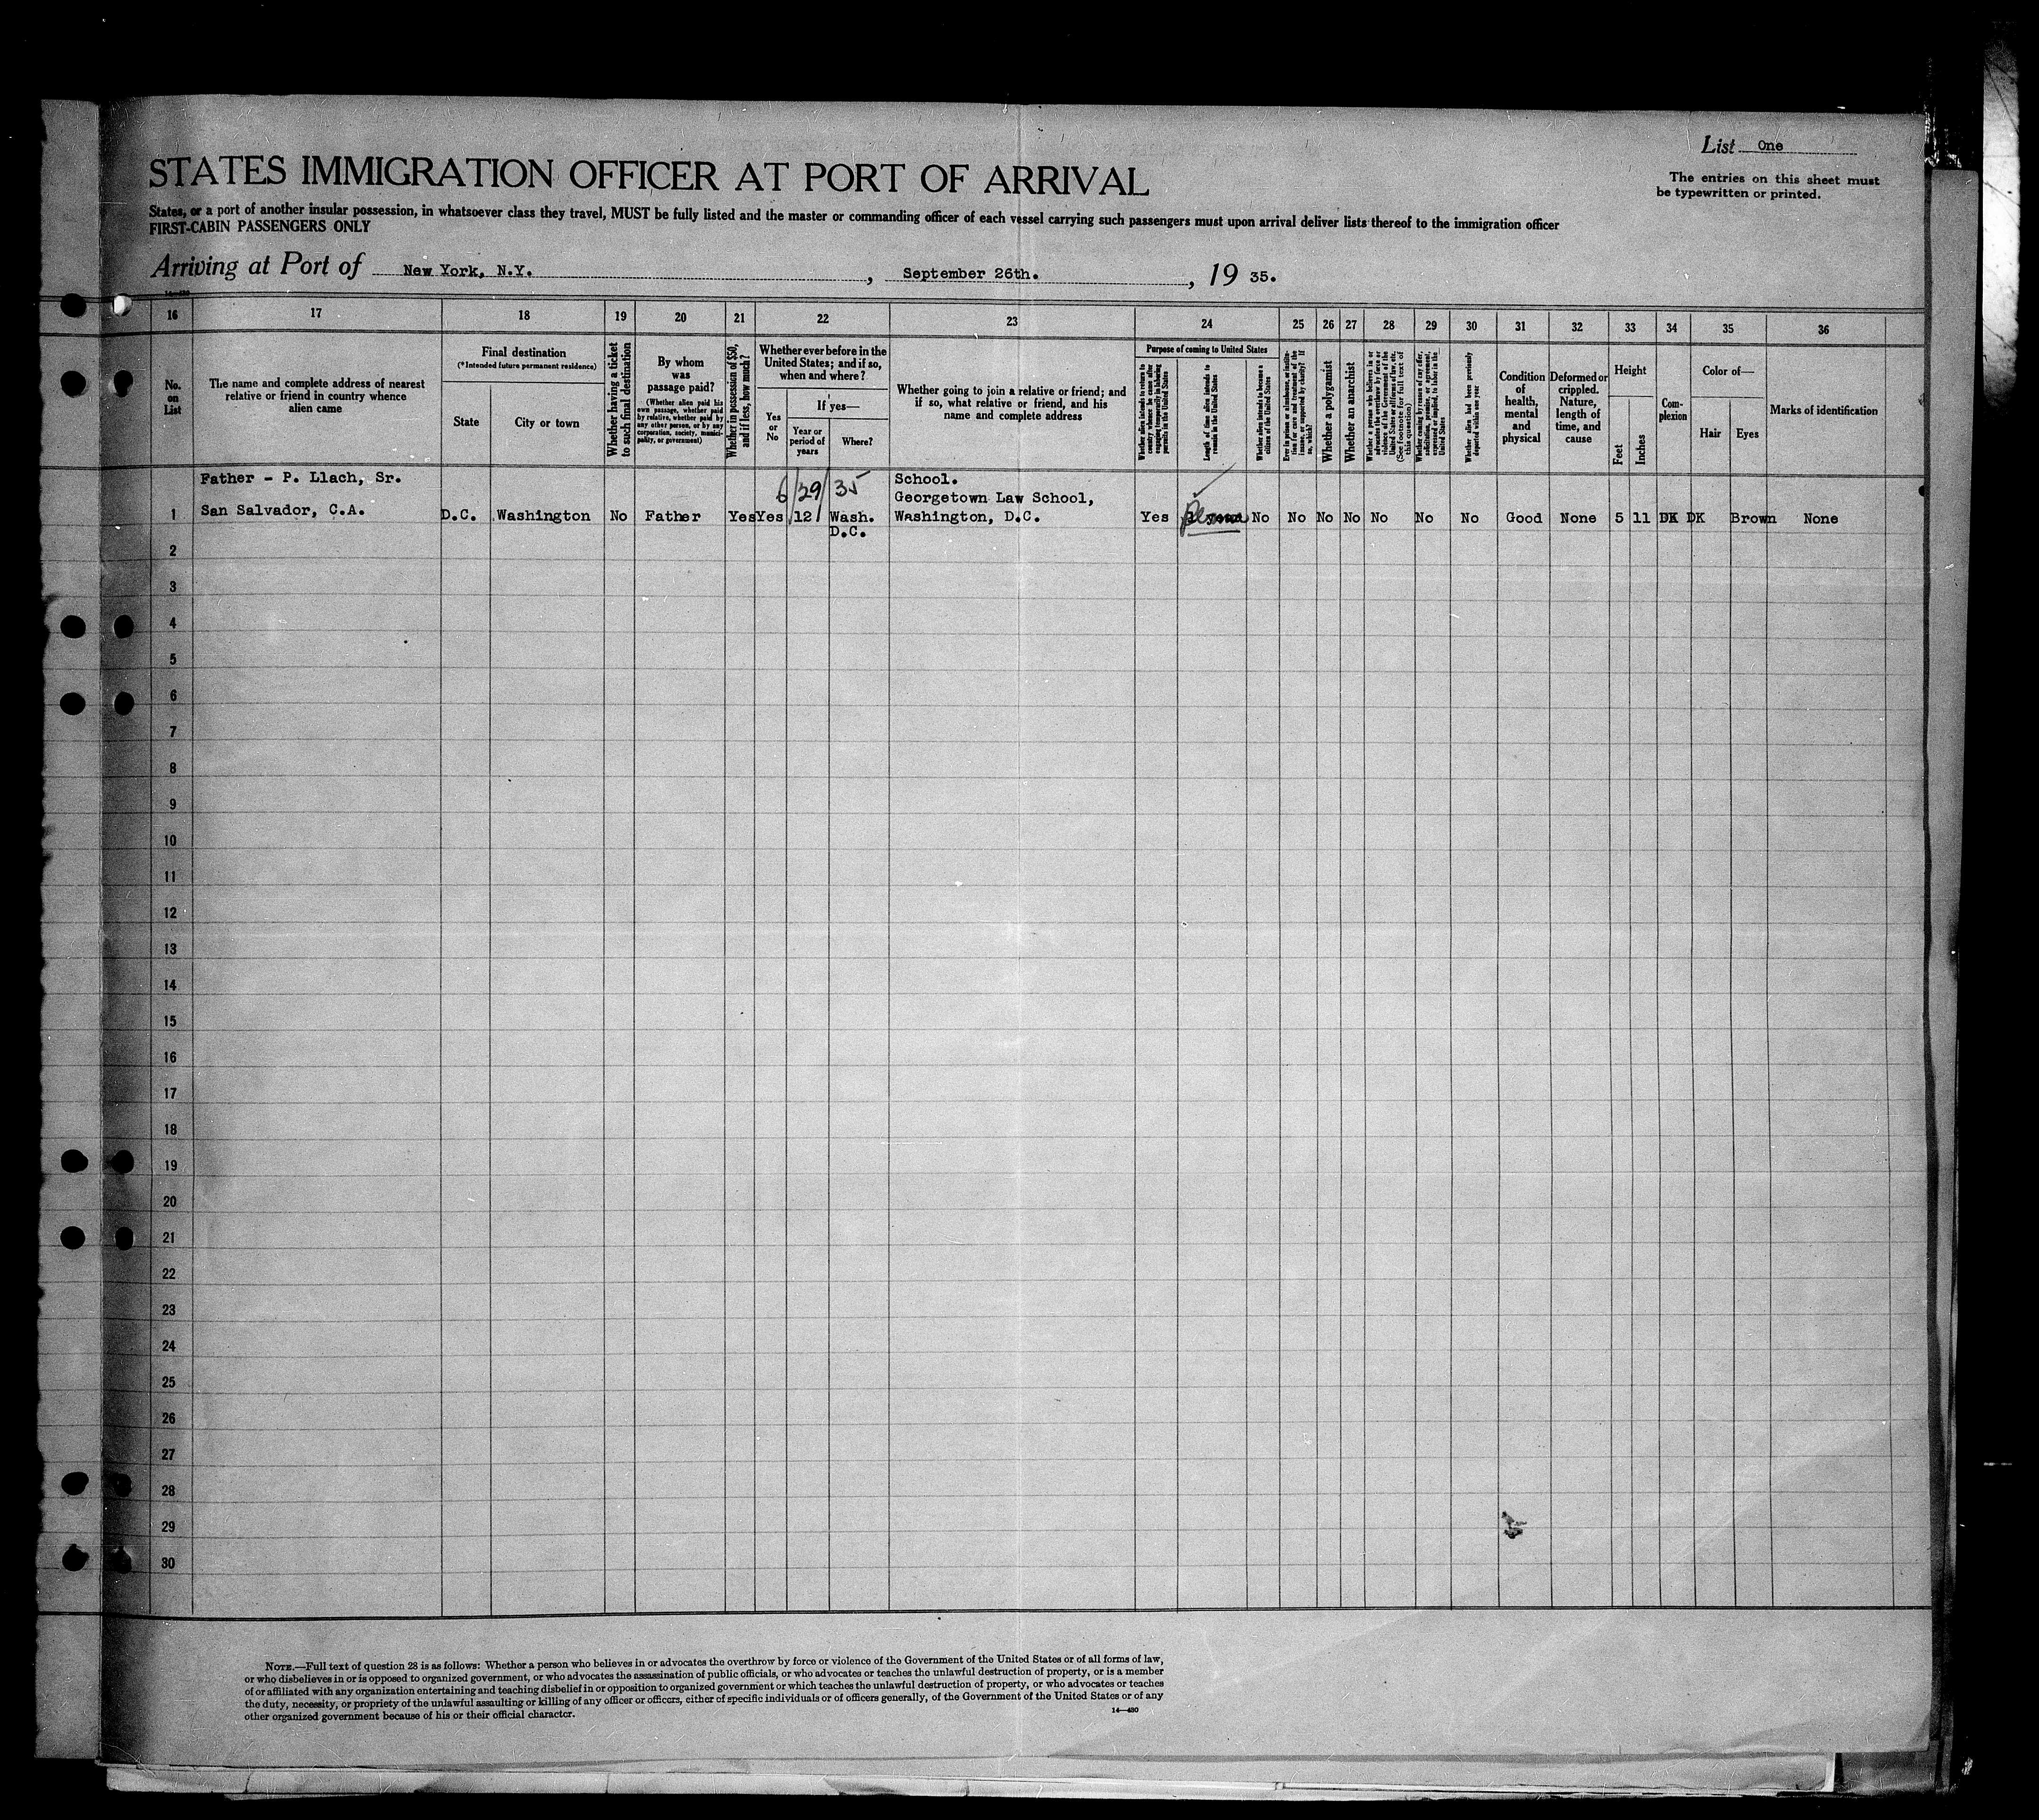 List One
The entries on this sheet must
be typewritten or printed.
STATES IMMIGRATION OFFICER AT PORT OF ARRIVAL
States, or a port of another insular possession, in whatsoever class they travel, MUST be fully listed and the master or commanding officer of each vessel carrying such passengers must upon arrival deliver lists thereof to the immigration officer
FIRST-CABIN PASSENGERS ONLY
Arriving at Port of New York, N.Y. , September 26th. , 19 35.
16 17 18 19 20 21 22 23 24 25 26 27 28 29 30 31 32 33 34 35 36
No.
on
List
The name and complete address of nearest
relative or friend in country whence
alien came
Final destination
(*Intended future permanent residence)
State
City or town
Whether having a ticket
to such final destination
By whom
was
passage paid?
(Whether alien paid his
own passage, whether paid
by relative, whether paid by
any other person, or by any
corporation, society, munici-
pality, or government)
Whether in possession of $50,
and if less, how much?
Whether ever before in the
United States; and if so,
when and where?
Yes
or
No
If yes—
Year or
period of
years
Where?
Whether going to join a relative or friend; and
if so, what relative or friend, and his
name and complete address
Purpose of coming to United States
Whether alien intends to return to
country whence he came after
engaging temporarily in laboring
pursuits in the United States
Length of time alien intends to
remain in the United States
Whether alien intends to become a
citizen of the United States
Ever in prison or almshouse, or institu-
tion for care and treatment of the
insane, or supported by charity? If
so, which?
Whether a polygamist
Whether an anarchist
Whether a person who believes in or
advocates the overthrow by force or
violence of the Government of the
United States or all forms of law, etc.
(See footnote for full text of
this question)
Whether coming by reason of any offer,
solicitation, promise, or agreement,
expressed or implied, to labor in the
United States
Whether alien had been previously
deported within one year
Condition
of
health,
mental
and
physical
Deformed or
crippled.
Nature,
length of
time, and
cause
Height
Feet
Inches
Com-
plexion
Color of—
Hair
Eyes
Marks of identification
Father - P. Llach, Sr.
6/29/35
School.
Georgetown Law School,
San Salvador, C.A.
1 D.C. Washington No Father Yes Yes 12 Wash. Washington, D.C. Yes No No No No No No No Good None 5 11 DK DK Brown None
D.C.
2
3
4
5
6
7
8
9
10
11
12
13
14
15
16
17
18
19
20
21
22
23
24
25
26
27
28
29
30
NOTE.—Full text of question 28 is as follows: Whether a person who believes in or advocates the overthrow by force or violence of the Government of the United States or of all forms of law,
or who disbelieves in or is opposed to organized government, or who advocates the assassination of public officials, or who advocates or teaches the unlawful destruction of property, or is a member
of or affiliated with any organization entertaining and teaching disbelief in or opposition to organized government or which teaches the unlawful destruction of property, or who advocates or teaches
the duty, necessity, or propriety of the unlawful assaulting or killing of any officer or officers, either of specific individuals or of officers generally, of the Government of the United States or of any
other organized government because of his or their official character.
14—430